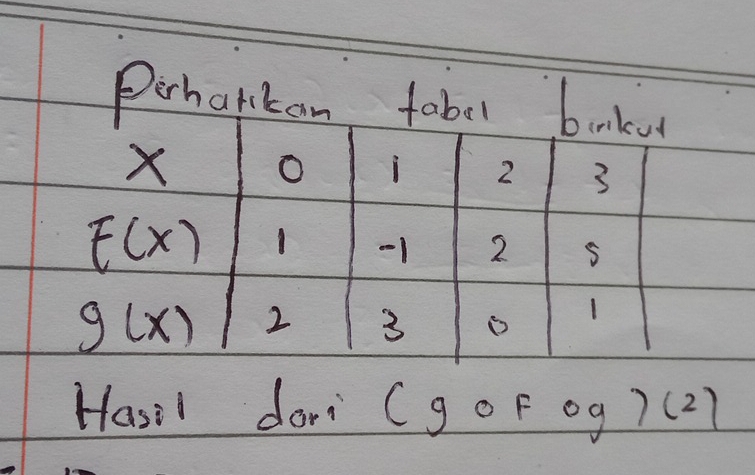 Perhatikan tabel birikut
X 0 1 2 3
F(X) 1 -1 2 5
g(X) 2 3 0 1
Hasil dari (g o F o g) (2)